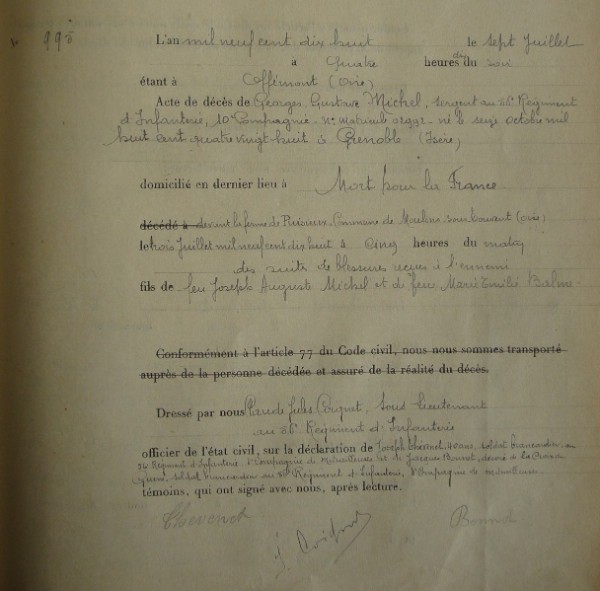 N° 995
L'an mil neuf cent dix huit le sept Juillet
à quatre heures dix du soir
étant à Offémont (Oise)
Acte de décès de Georges Gustave Michel, sergent au 86e Régiment
d'Infanterie, 10e Compagnie - N° matricule - né le seize octobre mil
huit cent quatre vingt-huit à Grenoble (Isère)
domicilié en dernier lieu à Mort pour la France
décédé à devant la ferme de Puisieux, Commune de Moulins-sous-touvent (Oise)
le trois Juillet mil neuf cent dix huit à cinq heures du matin
des suites de blessures reçues à l'ennemi
fils de feu Joseph Auguste Michel et de feue Marie Emilie Balme
Conformément à l'article 77 du Code civil, nous nous sommes transporté
auprès de la personne décédée et assuré de la réalité du décès.
Dressé par nous Jules, Sous-lieutenant
au 86e Régiment d'Infanterie
officier de l'état civil, sur la déclaration de Joseph 40 ans, soldat brancardier au
86e Régiment d'Infanterie Compagnie de Mitrailleuses et de Jacques décoré de la Croix de
guerre, soldat brancardier au 86e Régiment d'Infanterie, Compagnie de mitrailleuses
témoins, qui ont signé avec nous, après lecture.